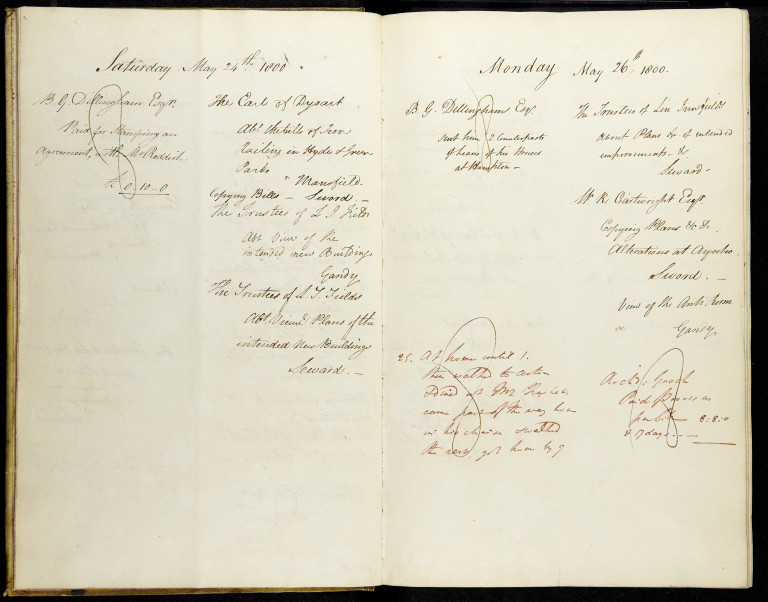 Saturday May 24th 1800.
B. G. Dillingham Esqr.
Paid for Stamping an
Agreement, with Mr
£ 0.10.0
The Earl of Dysart
Abt the bills of Iron
Railing in Hyde & Green
Parks
" Mansfield.
Copying Bills — Seward. —
The Trustees of L I Fields
Abt View of the
intended new Buildings
Gandy
The Trustees of L. I. Fields
Abt View & Plans of the
intended New Buildings
Seward. —
Monday May 26th 1800.
B. G. Dillingham Esqr.
sent him 2 Counterparts
of Leases of his Houses
at Hampton —
25. At home until 1.
then walked to Acton
dined at Mr
came part of the way home
in his chaise & walked
the rest got home by 9
The Trustees of Lin Inn Fields
About Plans &c of intended
improvements — &c
Seward —
W. R. Cartwright Esqr.
Copying Plans &c &c.
Alterations at Aynho
Seward. —
View of the Anti Room
Gandy.
Archd: Gooch
Paid
8:8:0
& 17 days. —